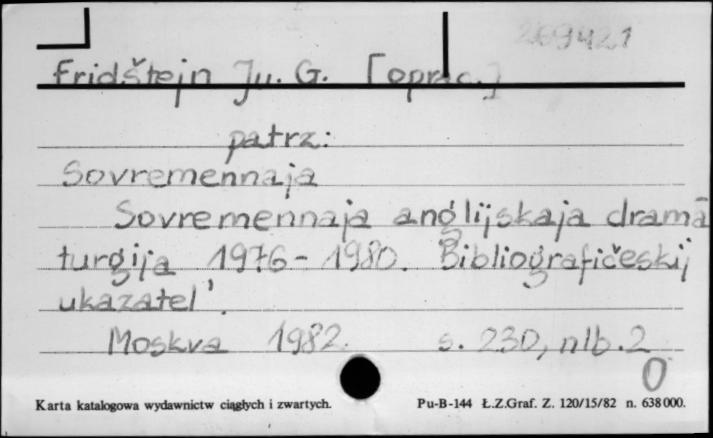 269421
Fridštejn Ju. G. [oprac.]
patrz:
Sovremennaja
Sovremennaja anglijskaja drama-
turgija 1976 - 1980. Bibliografičeskij
ukazatel'.
Moskva 1982. s. 230, nlb. 2
0
Karta katalogowa wydawnictw ciągłych i zwartych.
Pu-B-144 Ł.Z.Graf. Z. 120/15/82 n. 638000.